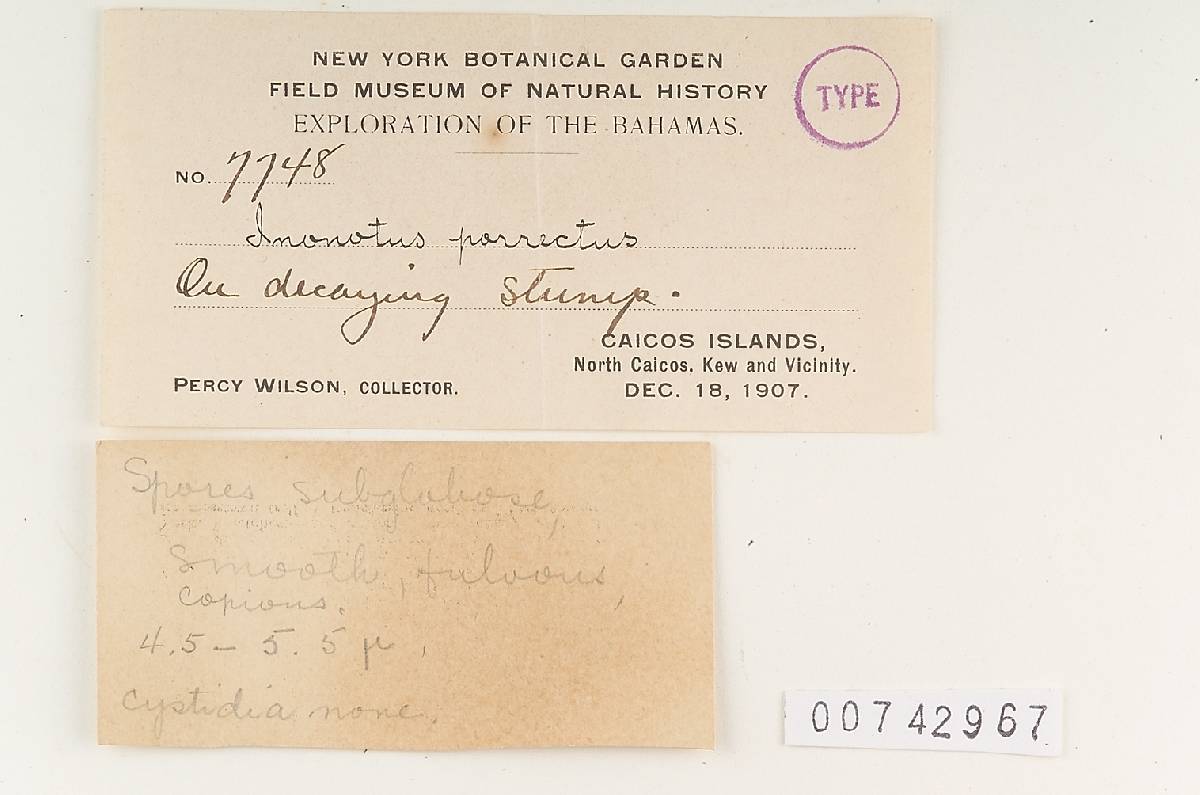 NEW YORK BOTANICAL GARDEN
FIELD MUSEUM OF NATURAL HISTORY
EXPLORATION OF THE BAHAMAS.
TYPE
NO. 7748
Inonotus porrectus
On decaying stump.
CAICOS ISLANDS,
North Caicos. Kew and Vicinity.
PERCY WILSON, COLLECTOR.
DEC. 18, 1907.
Spores subglobose,
smooth, fulvous,
copious.
4.5 – 5.5 µ.
cystidia none.
00742967